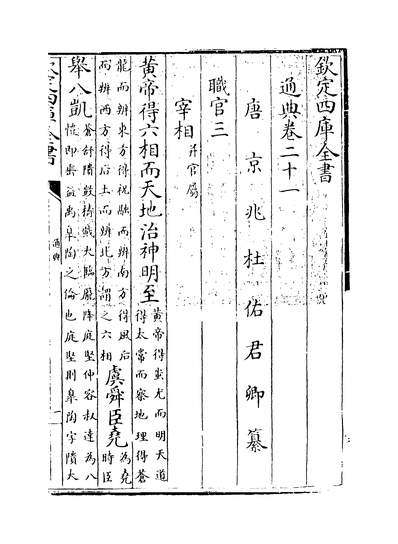 欽定四庫全書
通典卷二十一
唐京兆杜佑君卿纂
職官三
宰相 并官屬
黃帝得六相而天地治神明至 黃帝得蚩尤而明天道得太常而察地理得蒼
龍而辨東方得祝融而辨南方得風后而辨西方得后土而辨北方謂之六相 虞舜臣堯 為堯時臣
舉八凱 蒼舒隤敳檮戭大臨厖降庭堅仲容叔達為八愷即垂益禹皋陶之倫也庭堅則皋陶字隤大
通典